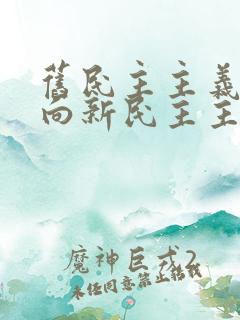 舊民主主義
向新民主主
魔神巨弍2
未任同意禁止轉載